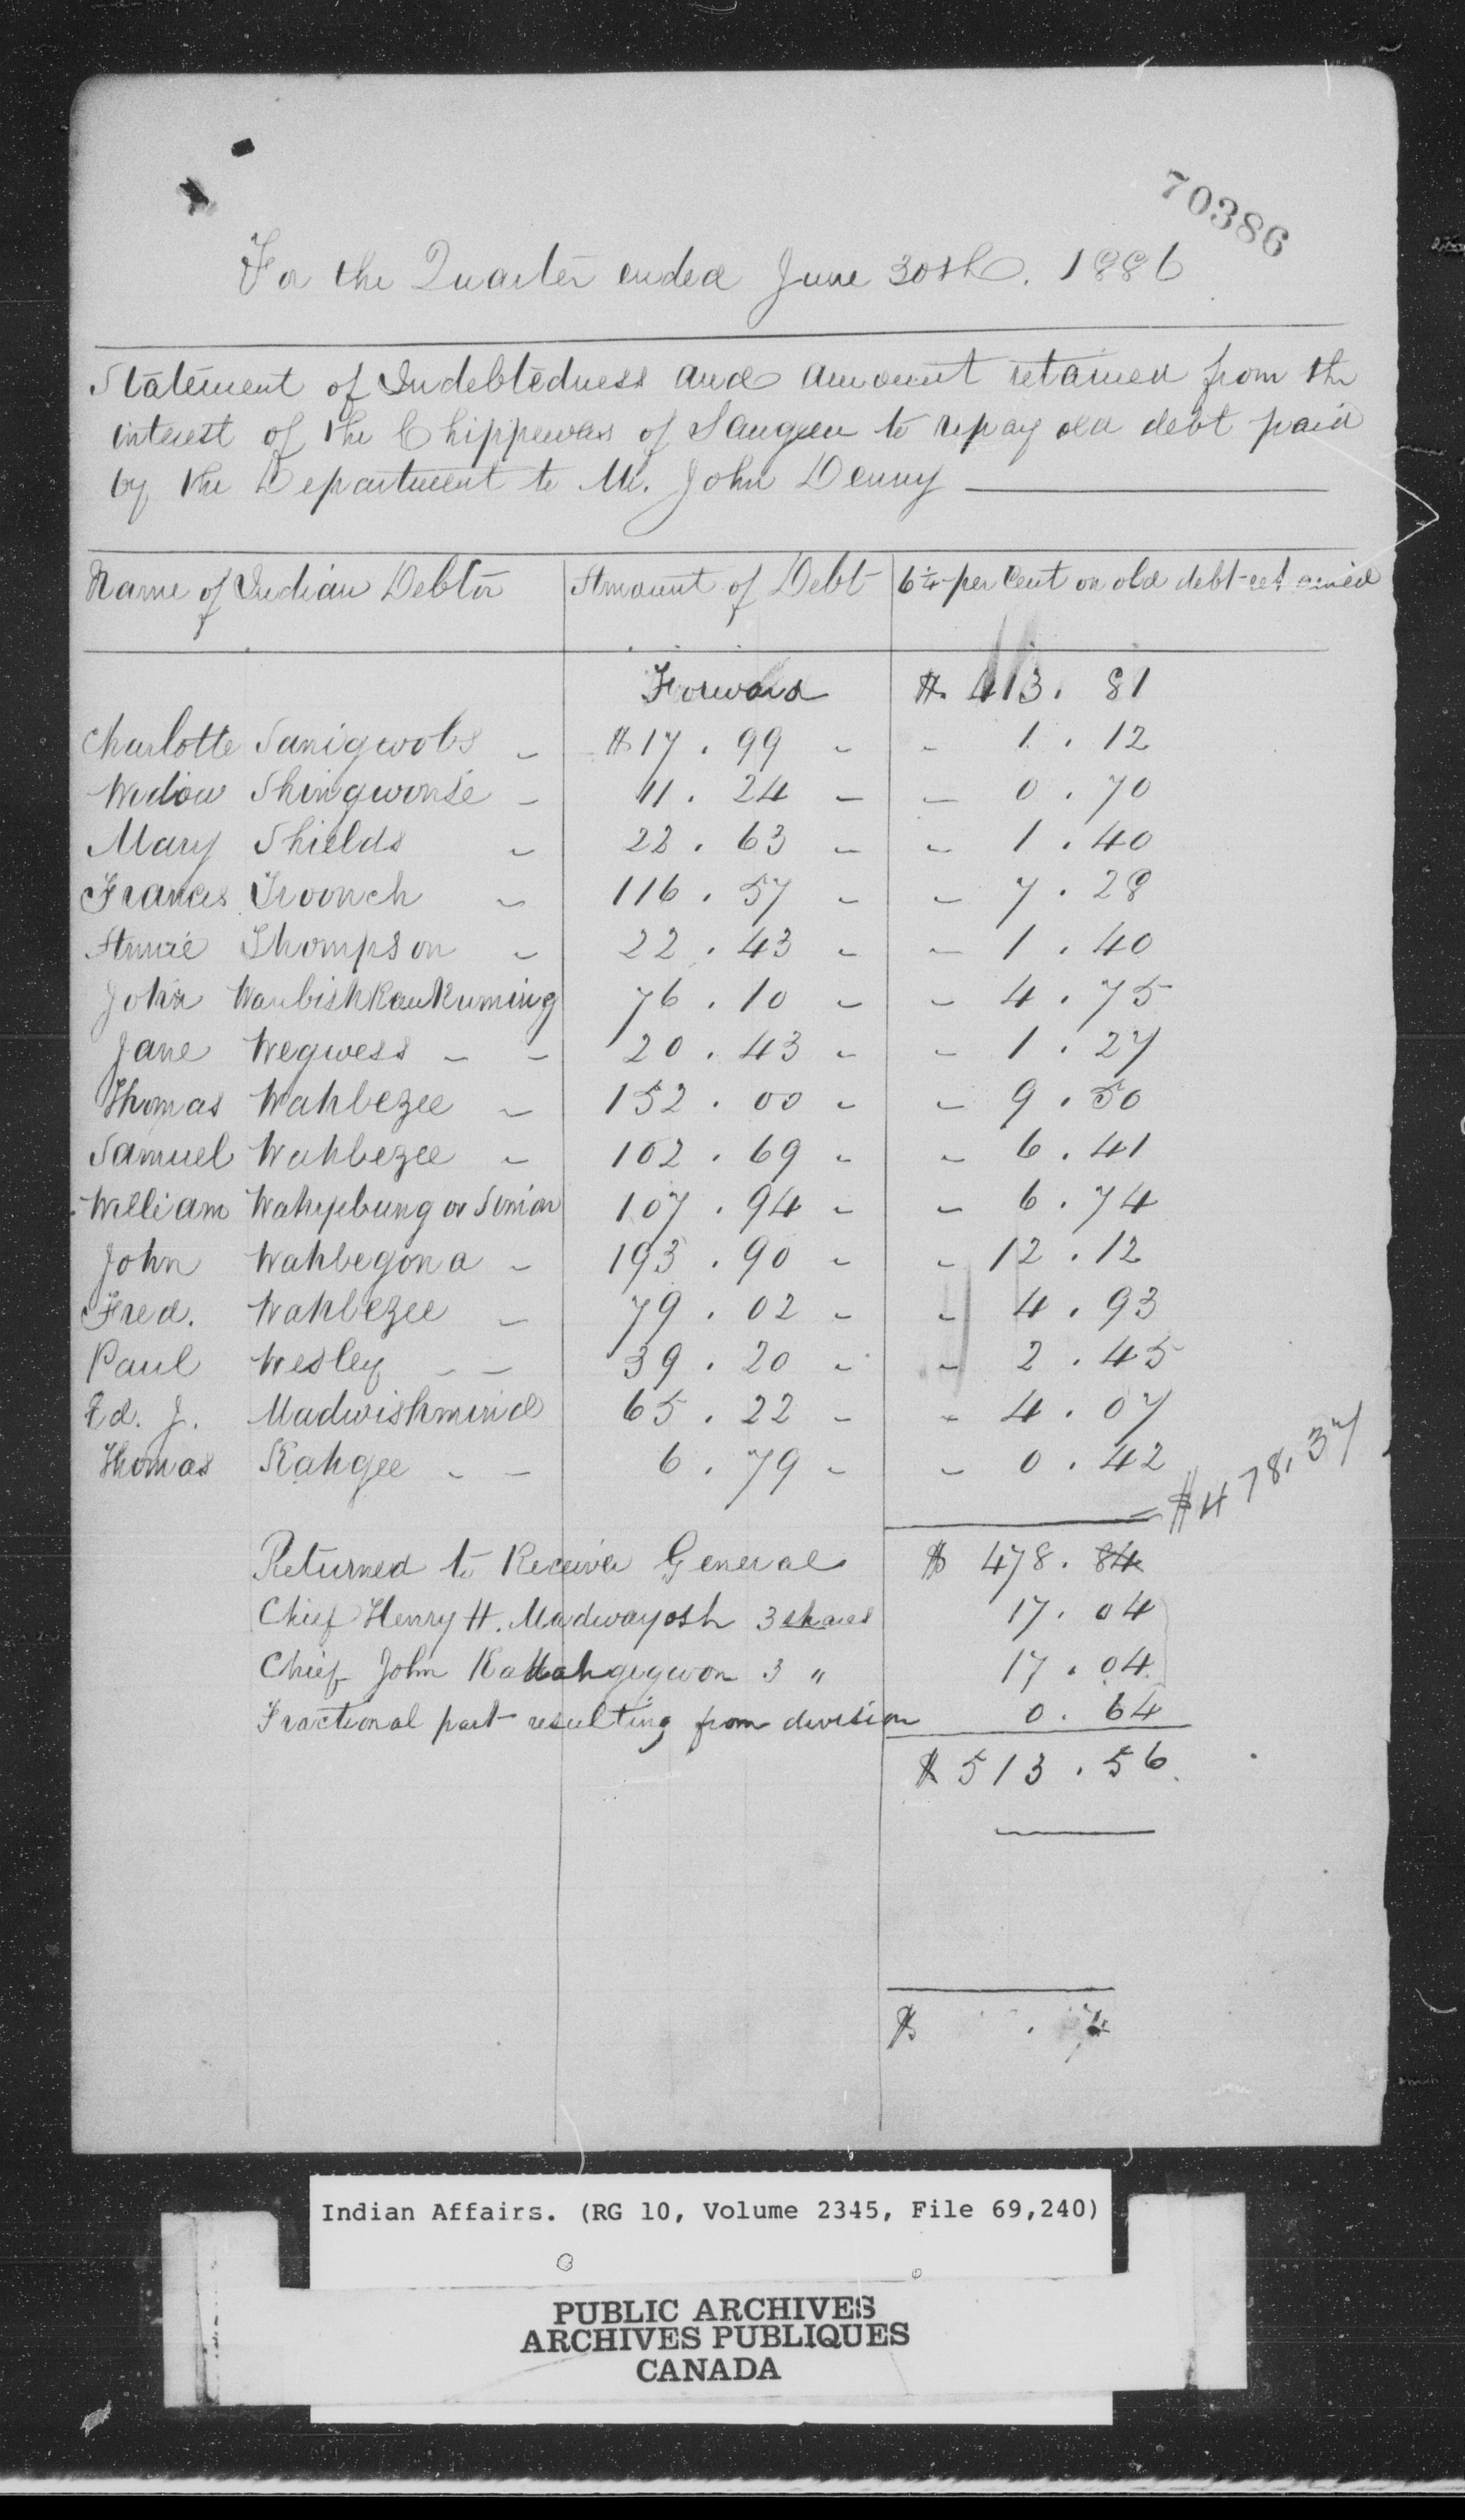 70386
For the Quarter ended June 30th. 1886
Statement of Indebtedness and amount retained from the
interest of the Chippewas of Saugeen to repay old debt paid
by the Department to Mr. John Denny
Name of Indian Debtor Amount of Debt 6 1/4 per cent on old debt retained
Forward $ 413. 81
Charlotte Sanigwobs - $17. 99 - - 1. 12
Widow Shingwonse - 11. 24 - - 0. 70
Mary Shields - 22. 63 - - 1. 40
Frances Troonch - 116. 57 - - 7. 28
Annie Thompson - 22. 43 - - 1. 40
John Waubishkaukuming 76. 10 - - 4. 75
Jane Wegwess - - 20. 43 - - 1. 27
Thomas Wahbezee - 152. 00 - - 9. 50
Samuel Wahbezee - 102. 69 - - 6. 41
William Wahyebung or Simon 107. 94 - - 6. 74
John Wahbegona - 193. 90 - - 12. 12
Fred. Wahbezee - 79. 02 - - 4. 93
Paul Wesley - - 39. 20 - - 2. 45
Ed. J. Madwishmind 65. 22 - - 4. 07
Thomas Kahgee - - 6. 79 - - 0. 42
= $478.37
Returned to Receiver General $ 478. 84
Chief Henry H. Madwayosh 3 shares 17. 04
Chief John Kadahgegwon 3 " 17. 04
Fractional part resulting from division 0. 64
$ 513. 56.
$ .
Indian Affairs. (RG 10, Volume 2345, File 69,240)
PUBLIC ARCHIVES
ARCHIVES PUBLIQUES
CANADA